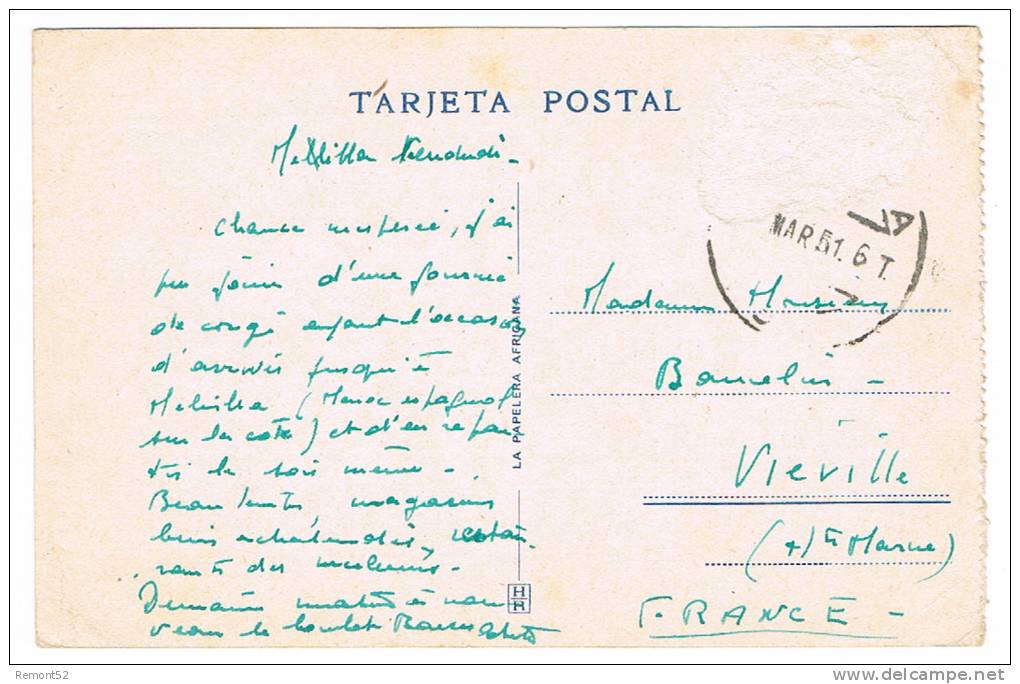 TARJETA POSTAL
Melilla Vendredi -
Chance inespérée, j'ai
pu jouir d'une journée
de congé
d'arriver jusqu'à
Melilla (Maroc espagnol
sur la côte) et d'en repar-
tir le soir même -
Beau temps, magasins
bien achalandés, restau-
rants des meilleurs -
Demain matin à nou-
veau le
LA PAPELERA AFRICANA
HR
MAR 51. 6 T.
Madame Monsieur
Bancelin -
Viéville
(Hte Marne)
FRANCE -
Remont52
delcampe.net